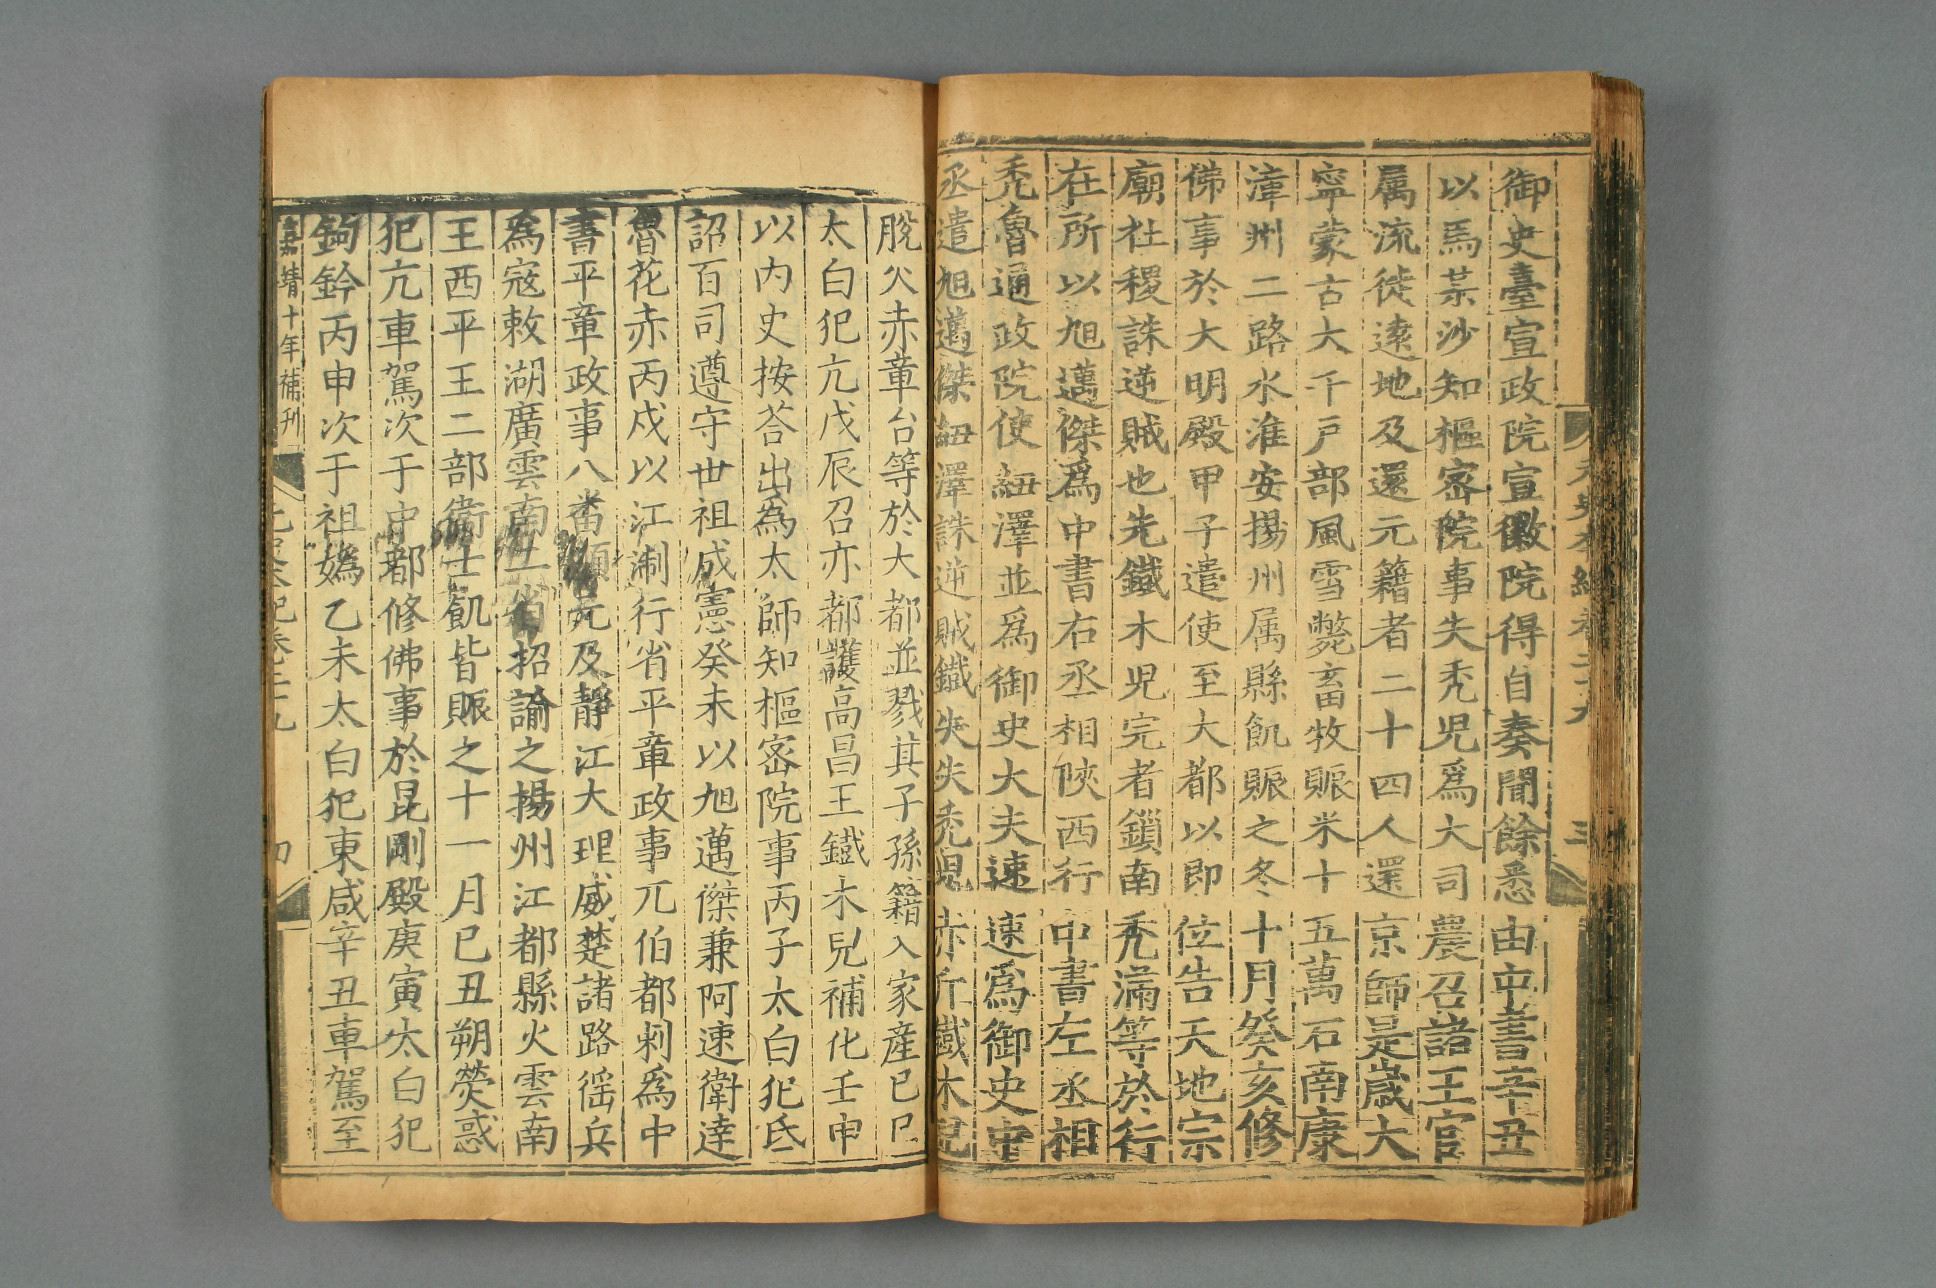 元史本紀卷二十九 三
御史臺宣政院宣徽院得自奏聞餘悉由中書辛丑
以馬某沙知樞密院事失禿兒爲大司農召諸王官
属流徙遠地及還元籍者二十四人還京師是歲大
寧蒙古大千戶部風雪斃畜牧賑米十五萬石南康
漳州二路水淮安揚州属縣飢賑之冬十月癸亥修
佛事於大明殿甲子遣使至大都以即位告天地宗
廟社稷誅逆賊也先鐵木児完者鎖南禿滿等於行
在所以旭邁傑爲中書右丞相陝西行中書左丞相
禿魯通政院使紐澤並爲御史大夫速速爲御史中
丞遣旭邁傑紐澤誅逆賊鐵失失禿児赤斤鐵木児
脫火赤章台等於大都並戮其子孫籍入家產己巳
太白犯亢戊辰召亦都護高昌王鐵木兒補化壬申
以內史按荅出爲太師知樞密院事丙子太白犯氐
詔百司遵守世祖成憲癸未以旭邁傑兼阿速衛達
魯花赤丙戍以江淛行省平章政事兀伯都剌爲中
書平章政事八番順元及靜江大理威楚諸路徭兵
爲寇敕湖廣雲南二省招諭之揚州江都縣火雲南
王西平王二部衛士飢皆賑之十一月己丑朔熒惑
犯亢車駕次于中都修佛事於昆剛殿庚寅太白犯
鉤鈐丙申次于祖嬀乙未太白犯東咸辛丑車駕至
嘉靖十年補刊 元史本紀卷二十九 四